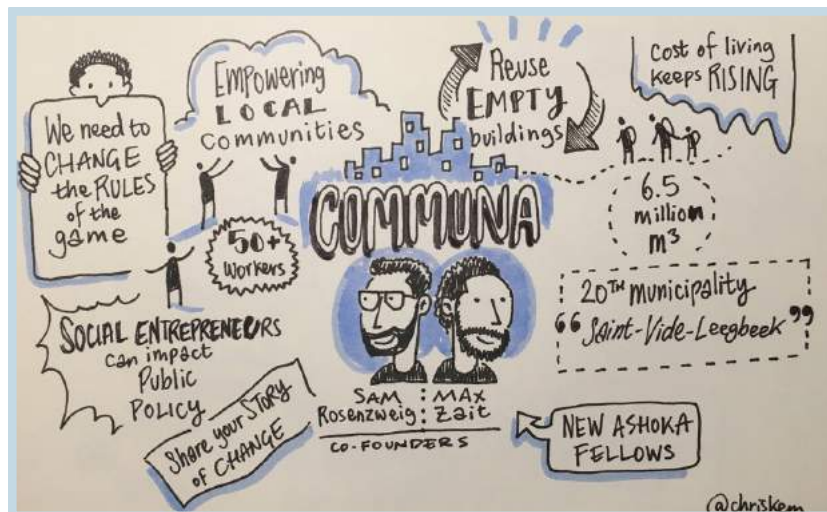 We need to
CHANGE
the RULES
of the
game
EMPOWERING
LOCAL
Communities
Reuse
EMPTY
buildings
Cost of living
keeps RISING
6.5
million
m³
COMMUNA
50+
Workers
20TH municipality
“Saint-Vide-Leegbeek”
SOCIAL ENTREPRENEURS
can impact
Public
POLICY
Share your STORY
of CHANGE
SAM
Rosenzweig
MAX
Zait
CO-FOUNDERS
NEW ASHOKA
FELLOWS
@chriskem